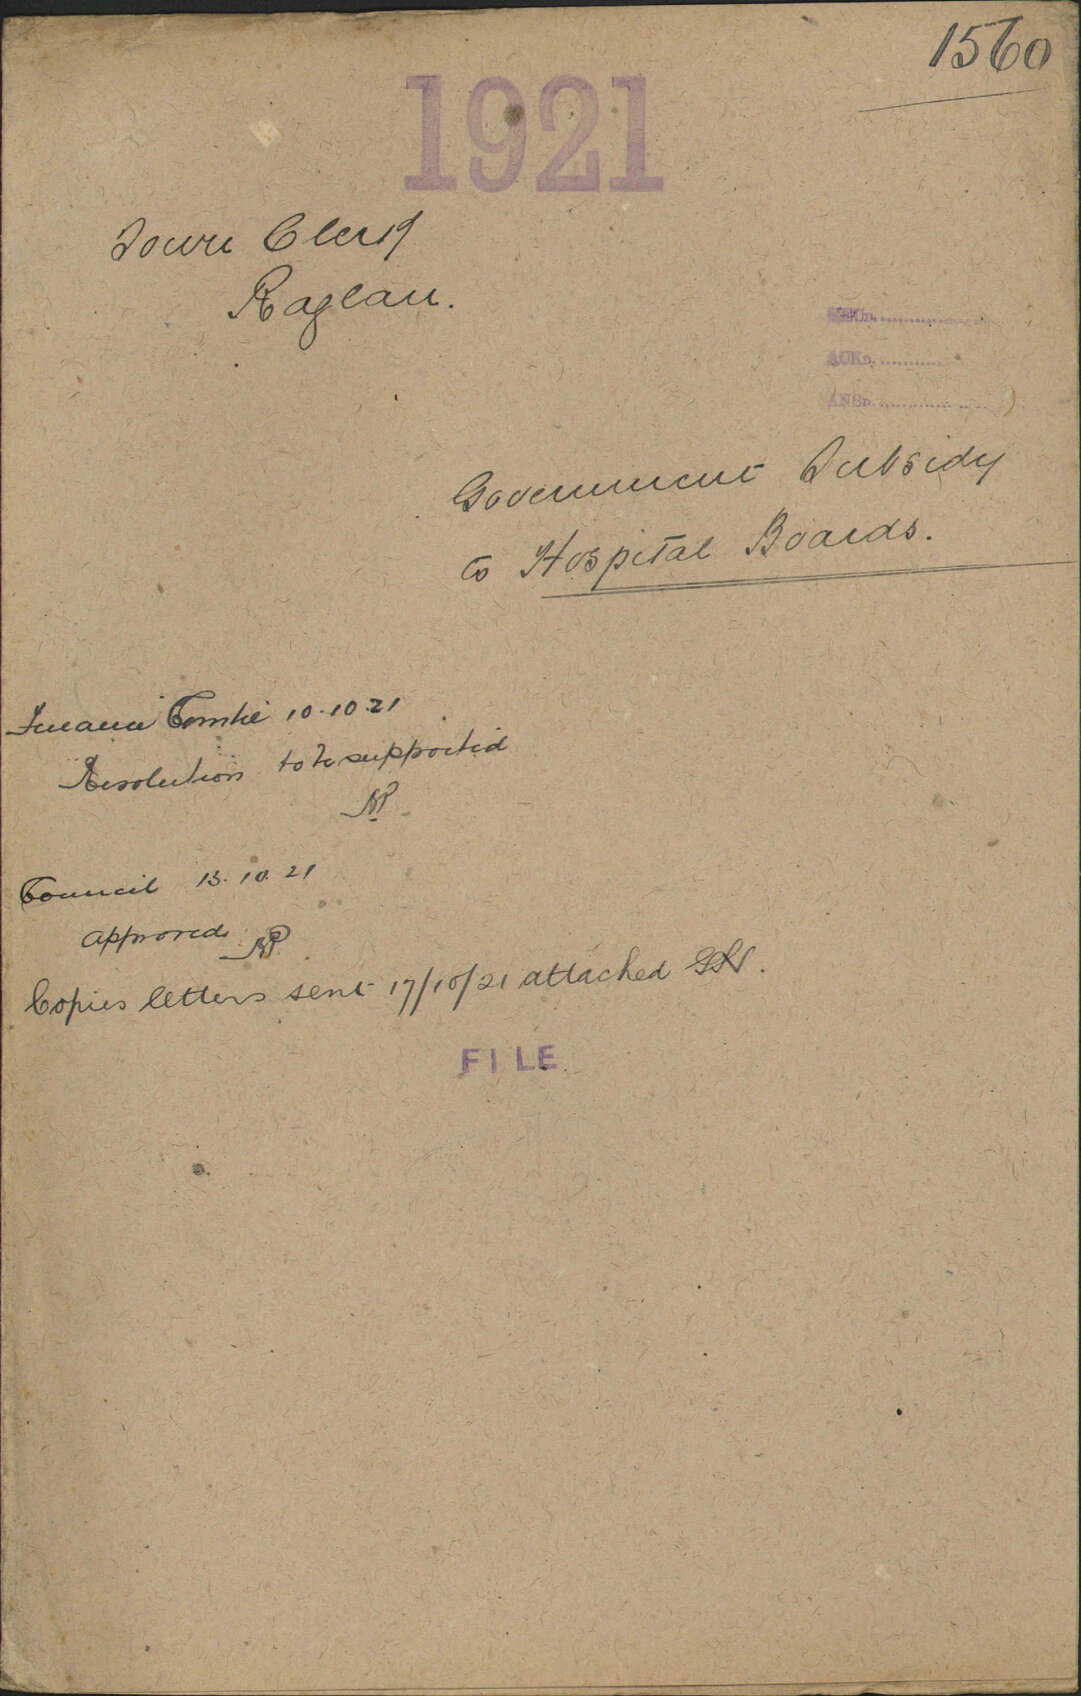 1560
1921
Town Clerk
Raglan.
ACKD.............
ANSD.............
Government Subsidy
to Hospital Boards.
Finance Comtee 10.10.21
Resolution to be supported
Council 13.10.21
approved
Copies letters sent 17/10/21 attached
FILE